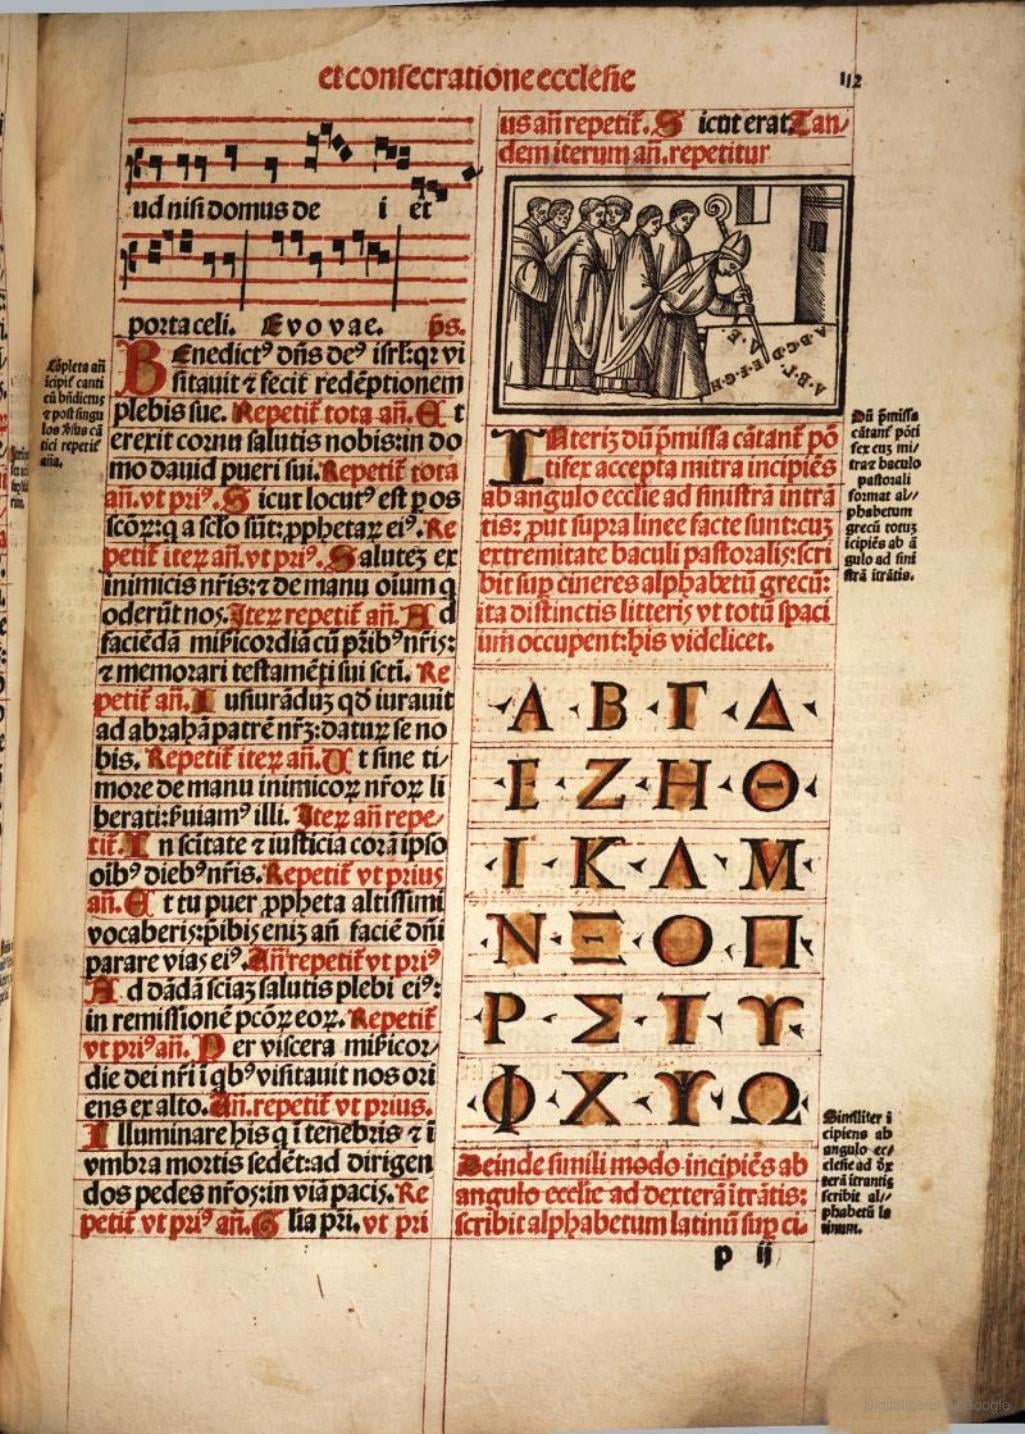 et consecratione ecclesie
112
ud nisi domus de i et
porta celi. Evovae. p̄s.
Cōpleta añ
icipit̄ canti
cū bñdictus
⁊ post singu
los ꝟsus cā
tici repetit̄
aña.
BEnedictꝰ dñs deꝰ isrl̄:qꝛ vi
sitauit ⁊ fecit redēptionem
plebis sue. Repetit̄ tota añ. E t
erexit cornu salutis nobis:in do
mo dauid pueri sui. Repetit̄ tota
añ. vt priꝰ. S icut locutꝰ est ꝑ os
scōꝝ:q a sclo sūt:ꝓphetaꝝ eiꝰ. Re
petit̄ iteꝝ añ. vt priꝰ. Saluteꝫ ex
inimicis nr̄is:⁊ de manu oīum q
oderūt nos. Iteꝝ repetit̄ añ. A d
faciēdā mīscordiā cū pr̄ibꝰ nr̄is:
⁊ memorari testamēti sui scti. Re
petit̄ añ. I usiurāduꝫ qd̄ iurauit
ad abrahā patrē nr̄ꝫ:daturꝫ se no
bis. Repetit̄ iteꝝ añ. U t sine ti/
more de manu inimicoꝝ nr̄oꝝ li
berati:s̄uiamꝰ illi. Iteꝝ añ repe/
tit̄. I n scītate ⁊ iusticia corā ipso
oībꝰ diebꝰ nr̄is. Repetit̄ vt prius
añ. E t tu puer ꝓpheta altissimi
vocaberis:p̄ibis eniꝫ añ faciē dñi
parare vias eiꝰ. Añ repetit̄ vt priꝰ
A d dādā sciaꝫ salutis plebi eiꝰ:
in remissionē pcōꝝ eoꝝ. Repetit̄
vt priꝰ añ. P er viscera mīsicor/
die dei nr̄i ī qbꝰ visitauit nos ori
ens ex alto. Añ. repetit̄ vt prius.
I lluminare his q ī tenebris ⁊ ī
vmbra mortis sedēt:ad dirigen
dos pedes nr̄os:in viā pacis. Re
petit̄ vt priꝰ añ. G lia pr̄i. vt pri
us añ repetit̄. S icut erat. Tan/
dem iterum añ. repetitur
A·B·C·D·E·F·G·H
INteriꝫ dū p̄missa cātant̄ pō
tifex accepta mitra incipiēs
ab angulo ecclie ad sinistrā intrā
tis: ꝓut supra linee facte sunt:cuꝫ
extremitate baculi pastoralis:scri
bit suꝑ cineres alphabetū grecū:
ita distinctis litteris vt totū spaci
um occupent:his videlicet.
Dū p̄missa
cātant̄ pōti
fex cuꝫ mi/
tra ⁊ baculo
pastorali
format al//
phabetum
grecū totuꝫ
icipiēs ab ā
gulo ad sini
strā itrātis.
Α · Β · Γ · Δ ·
· Ε · Ζ · Η · Θ ·
· Ι · Κ · Λ · Μ ·
· Ν · Ξ · Ο · Π ·
· Ρ · Σ · Τ · Υ ·
· Φ · Χ · Ψ · Ω ·
Deinde simili modo incipiēs ab
angulo ecclie ad dexterā itrātis:
scribit alphabetum latinū suꝑ ci-
Similiter ī
cipiens ab
angulo ec/
clesie ad dx
terā itrantis
scribit al//
phabetū la
tinum.
p ij
Digitalisiert Google